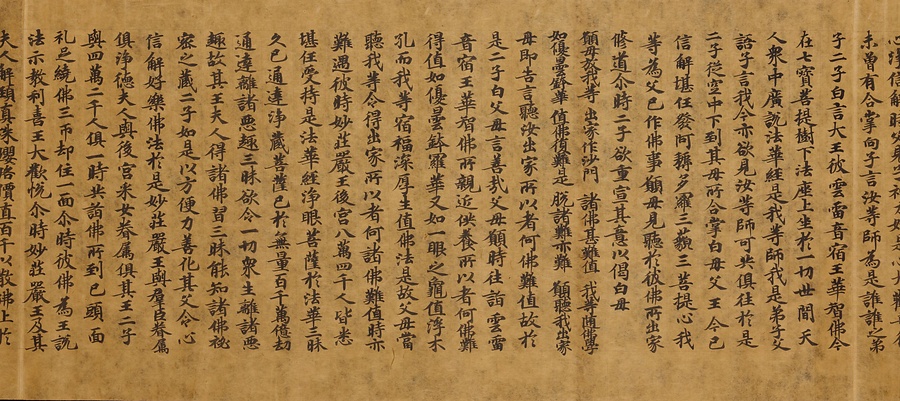 未曾有合掌向子言汝等師為是誰誰之弟
子二子白言大王彼雲雷音宿王華智佛今
在七寶菩提樹下法座上坐於一切世間天
人衆中廣說法華經是我等師我是弟子父
語子言我今亦欲見汝等師可共俱往於是
二子從空中下到其母所合掌白母父王今已
信解堪任發阿耨多羅三藐三菩提心我
等為父已作佛事願母見聽於彼佛所出家
修道尒時二子欲重宣其意以偈白母
願母放我等 出家作沙門 諸佛甚難值 我等隨佛學
如優曇鉢華 值佛復難是 脫諸難亦難 願聽我出家
母即告言聽汝出家所以者何佛難值故於
是二子白父母言善哉父母願時往詣雲雷
音宿王華智佛所親近供養所以者何佛難
得值如優曇鉢羅華又如一眼之龜值浮木
孔而我等宿福深厚生值佛法是故父母當
聽我等令得出家所以者何諸佛難值時亦
難遇彼時妙莊嚴王後宮八萬四千人皆悉
堪任受持是法華經淨眼菩薩於法華三昧
久已通達淨藏菩薩已於無量百千萬億劫
通達離諸惡趣三昧欲令一切衆生離諸惡
趣故其王夫人得諸佛習三昧能知諸佛秘
密之藏二子如是以方便力善化其父令心
信解好樂佛法於是妙莊嚴王與羣臣眷屬
俱淨德夫人與後宮采女眷屬俱其王二子
與四萬二千人俱一時共詣佛所到已頭面
礼足繞佛三帀却住一面尒時彼佛為王說
法示教利喜王大歡悅尒時妙莊嚴王及其
夫人解頸真珠瓔珞價直百千以散佛上於